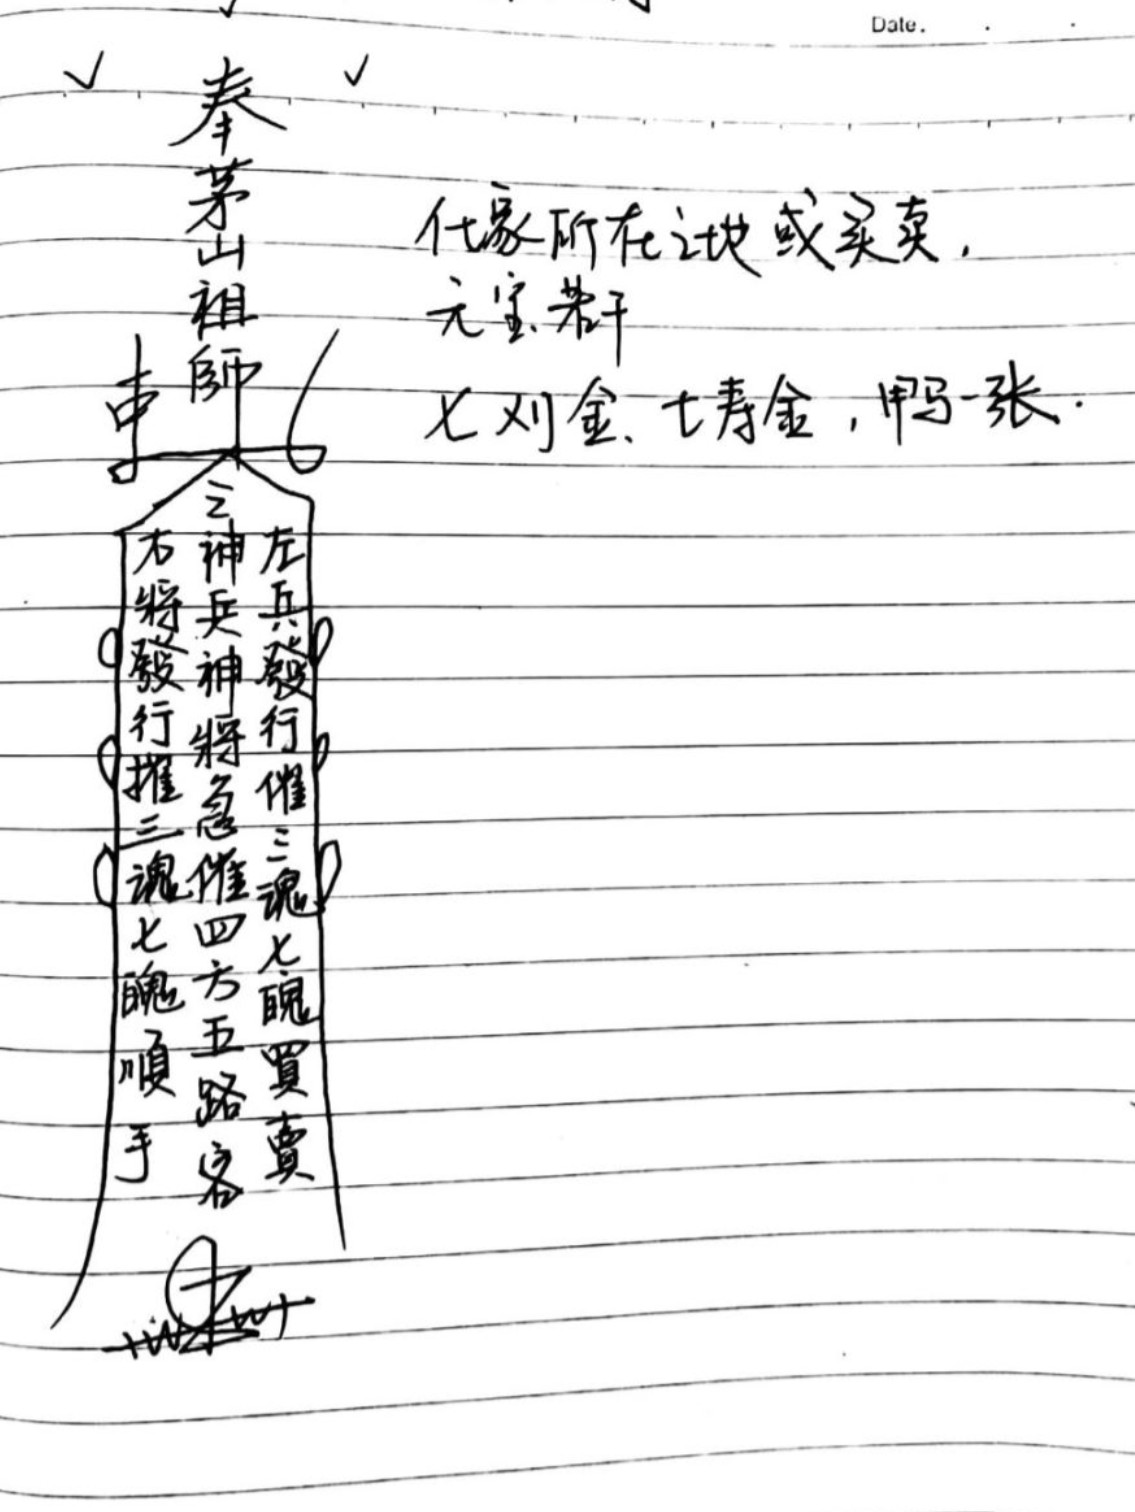 Date.
奉茅山祖師
仕家所在之地或买卖，
元宝、若干
七刈金、七寿金，甲马一张.
左兵發行催三魂七魄買賣
三神兵神將急催四方五路客
右將發行摧三魂七魄順手